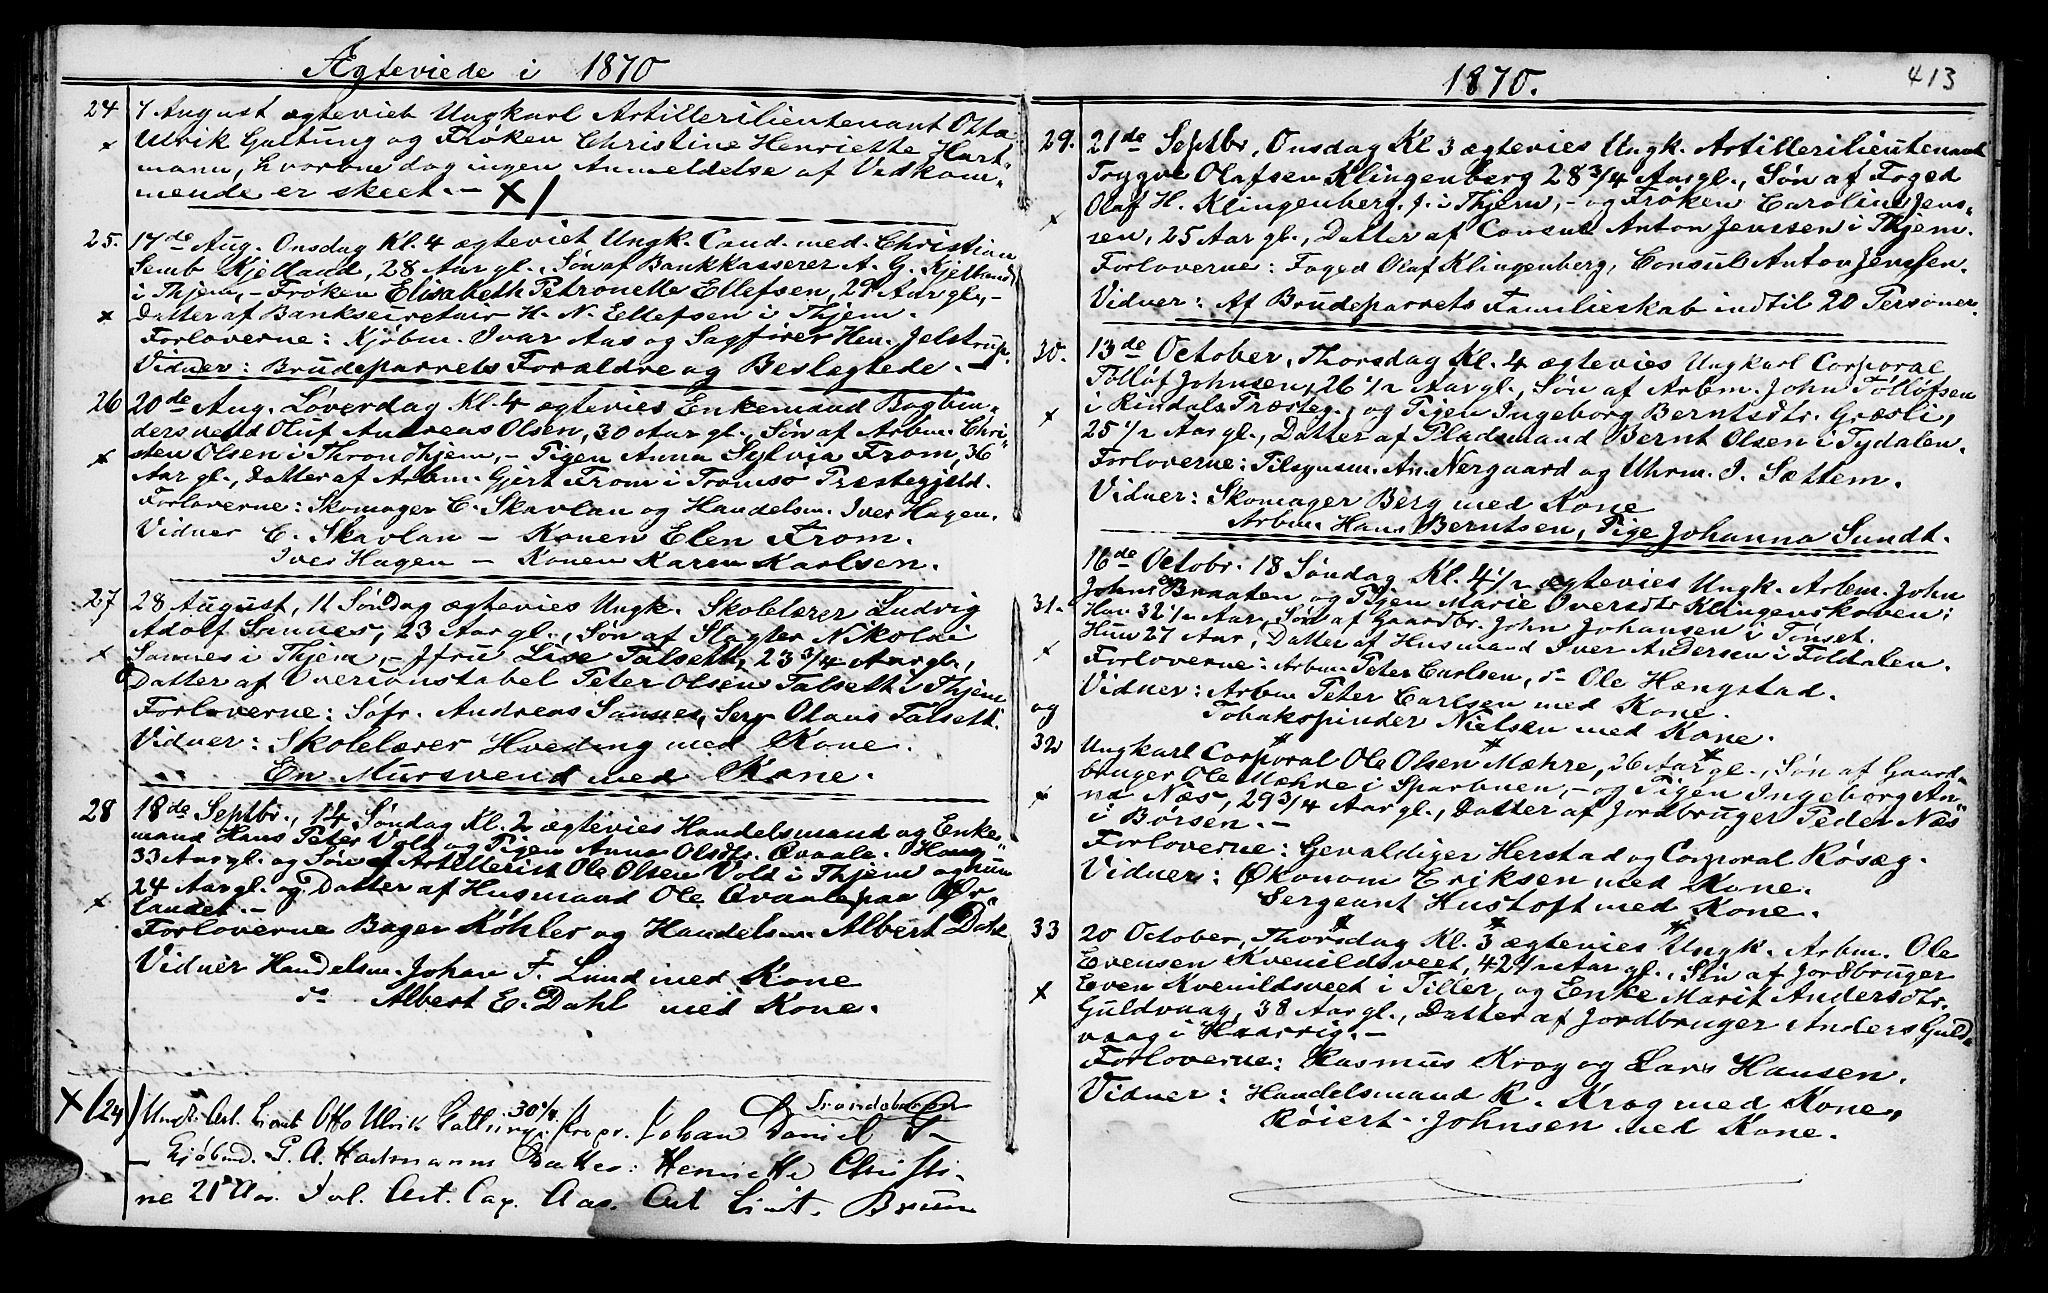 Ægteviede i 1870
24 7 August ægteviet Ungkarl Artillerilieutenant Otto
x Ulrik Galtung og Frøken Christine Henriette Hart-
mann, hvorom dog ingen Anmeldelse af Vedkom-
mende er skeet. - X/
25. 17de Aug. Onsdag Kl. 4 ægteviet Ungk. Cand. med. Christian
Semb Kjelland, 28 Aar gl., Søn af Bankkasserer A. G. Kjelland
i Thjem, - Frøken Elisabeth Petronelle Ellefsen, 29 Aar gl., -
x Datter af Banksecretair H. N. Ellefsen i Thjem.
Forloverne: Kjøbm. Ivar Aas og Sagfører Hen. Jelstrup.
Vidner: Brudeparrets Forældre og Beslægtede. -
26 20de Aug. Løverdag Kl. 4 ægtevies Enkemand Bogbin-
dersvend Oluf Andreas Olsen, 30 Aar gl., Søn af Arbm. Chri-
x sten Olsen i Throndhjem, - Pigen Anna Sylvia From, 36
Aar gl., Datter af Arbm. Gjert From i Tromsø Præstegjeld.
Forloverne: Skomager C. Skavlan og Handelsm. Iver Hagen.
Vidner C. Skavlan - Konen Elen From.
Iver Hagen - Konen Karen Karlsen.
27 28 August, 11 Søndag ægtevies Ungk. Skolelærer Ludvig
Adolf Sannes, 23 Aar gl., Søn af Slagter Nikolai
x Sannes i Thjem, - Jfru Lise Talsett, 23 3/4 Aar gl.,
Datter af Overconstabel Peter Olsen Talsett i Thjem
Forloverne: Søfr. Andreas Sannes, Serg. Olaus Talsett.
Vidner: Skolelærer Hveding med Kone.
En Mursvend med Kone.
28 18de Septbr., 14 Søndag Kl. 2 ægtevies Handelsmand og Enke-
mand Hans Peter Vold og Pigen Anna Olsdtr. Qvaale. Han
33 Aar gl. og Søn af Artillerist Ole Olsen Vold i Thjem og hun
24 Aar gl. og Datter af Husmand Ole Qvaale paa Ør-
x landet. -
Forloverne Bager Køhler og Handelsm. Albert Dahl
Vidner Handelsm. Johan F. Lund med Kone
do Albert E. Dahl med Kone.
X (24) Ungk. Art. Lieut Otto Ulrik Galtung 30 1/4. Propr. Johan Daniel
- Kjøbmd. P. A. Hartmanns Datter: Henriette Christi-
ne 21 Aar. Forl. Art. Cap. Aas. Art Lieut. Bruun
1870.
413
29. 21de Septbr, Onsdag Kl 3 ægtevies Ungk. Artillerilieutenant
Trygve Olafsen Klingenberg 28 3/4 Aar gl., Søn af Foged
x Olaf H. Klingenberg. J. i Thjem, - og Frøken Caroline Jens-
sen, 25 Aar gl., Datter af Consul Anton Jenssen i Thjem.
Forloverne: Foged Olaf Klingenberg, Consul Anton Jenssen.
Vidner: Af Brudeparrets Familieskab indtil 20 Personer.
30. 13de October, Thorsdag Kl. 4 ægtevies Ungkarl Corporal
Tolløf Johnsen, 26 1/2 Aar gl., Søn af Arbm. John Tølløfsen
x i Rindals Præsteg., og Pigen Ingeborg Berntsdtr. Græsli,
25 1/2 Aar gl., Datter af Pladsmand Bernt Olsen i Tydalen.
Forloverne: Tilsynsm. An. Nergaard og Uhrm. I. Sættem.
Vidner: Skomager Berg med Kone
Arbm. Hans Berntsen, Pige Johanna Sundt.
16de Octobr. 18 Søndag Kl. 4 1/2 ægtevies Ungk. Arbm. John
31. Johnsen Braaten og Pigen Marie Oversdtr Klingenskoven:
Han 32 1/2 Aar, Søn af Gaardbr. John Johansen i Tønset.
x Hun 27 Aar, Datter af Husmand Iver Andersen i Foldalen.
Forloverne: Arbm. Peter Carlsen, do Ole Hængstad.
Vidner: Arbm Peter Carlsen med Kone.
og Tobakspinder Nielsen med Kone.
32 Ungkarl Corporal Ole Olsen Mæhre, 26 Aar gl., Søn af Gaard-
bruger Ole Mæhre i Sparbuen, - og Pigen Ingeborg An-
x na Næs, 29 3/4 Aar gl., Datter af Jordbruger Peder Næs
i Børsen. -
Forloverne: Gevaldiger Herstad og Corporal Røsæg.
Vidner: Økonom Eriksen med Kone.
Sergeant Hustoft med Kone.
33 20 October, Thorsdag Kl. 3 ægtevies Ungk. Arbm. Ole
Evensen Kvenildsveet, 42 1/2 Aar gl., Søn af Jordbruger
x Even Kvenildsveet i Tiller, og Enke Marit Andersdtr.
Guldvaag, 38 Aar gl., Datter af Jordbruger Anders Guld-
vaag i Haarrig. -
Forloverne: Rasmus Krog og Lars Hansen.
Vidner: Handelsmand R. Krog med Kone,
Røiert. Johnsen med Kone.